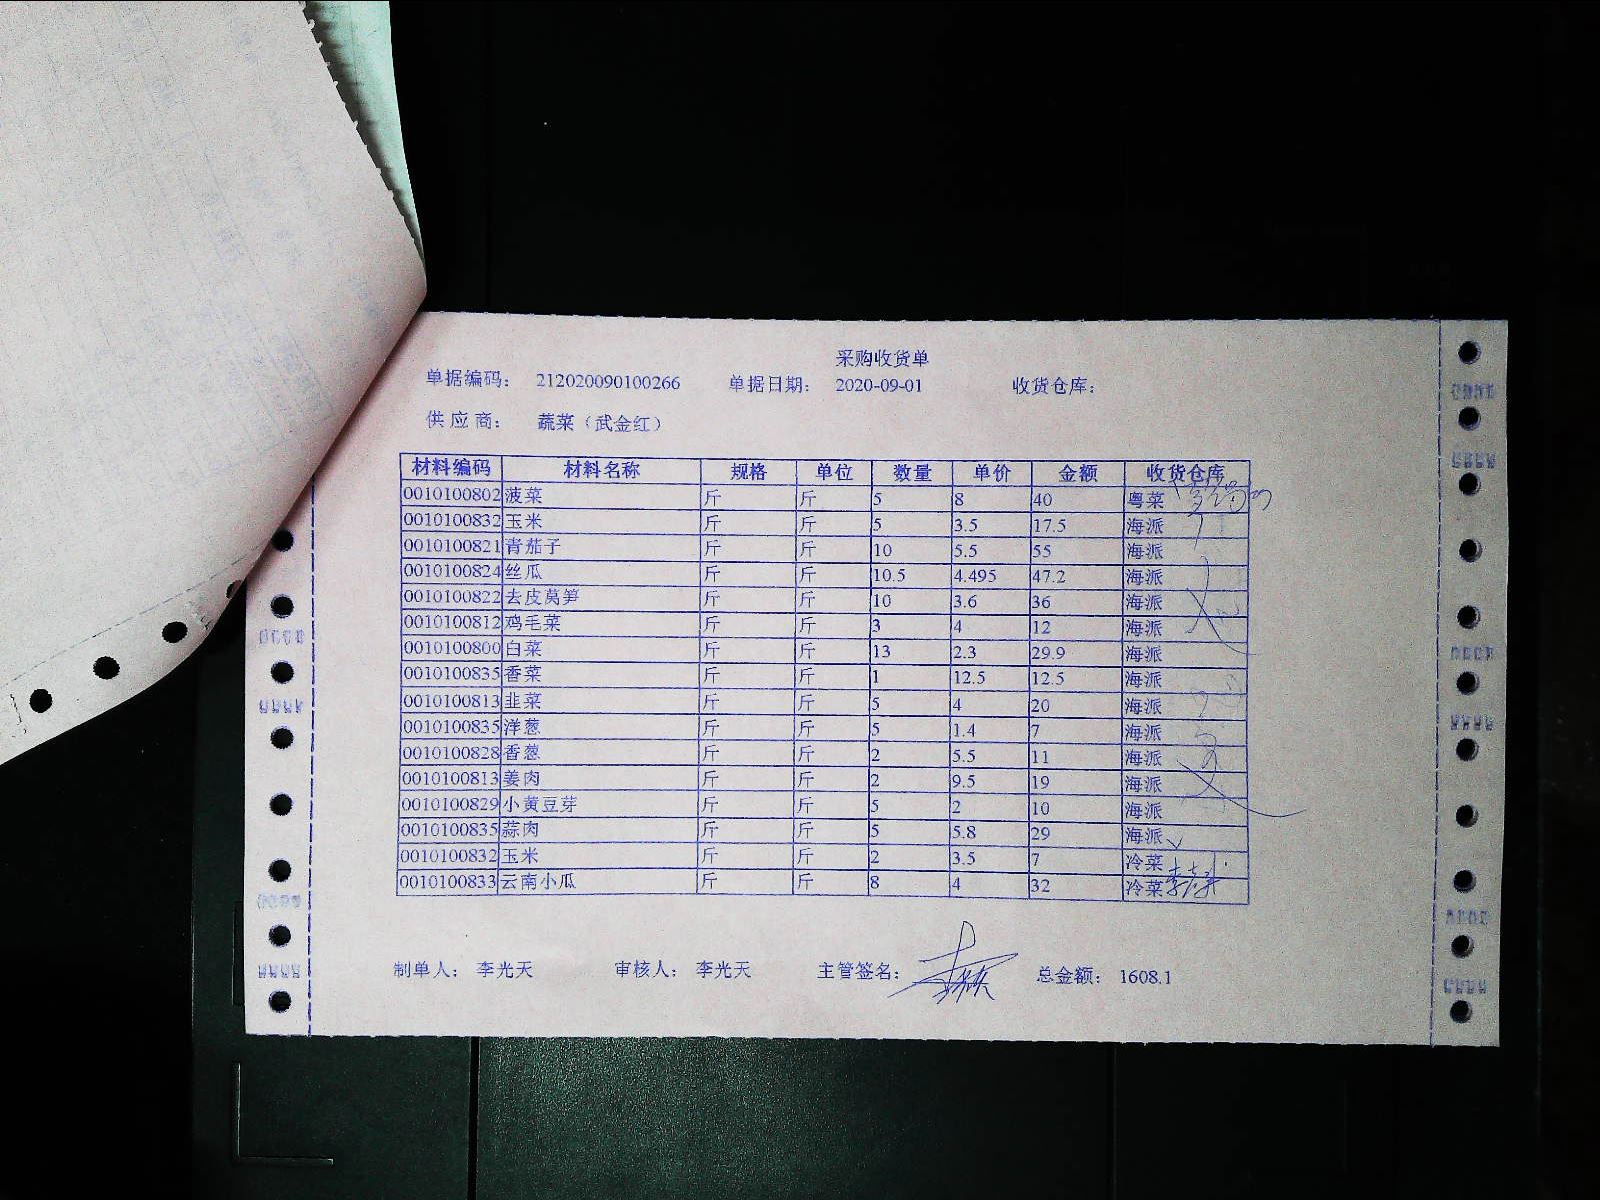 采购收货单
单据编码： 212020090100266 单据日期： 2020-09-01 收货仓库：
供应商： 蔬菜（武金红）
材料编码 材料名称 规格 单位 数量 单价 金额 收货仓库
0010100802 菠菜 斤 斤 5 8 40 粤菜
0010100832 玉米 斤 斤 5 3.5 17.5 海派
0010100821 青茄子 斤 斤 10 5.5 55 海派
0010100824 丝瓜 斤 斤 10.5 4.495 47.2 海派
0010100822 去皮莴笋 斤 斤 10 3.6 36 海派
0010100812 鸡毛菜 斤 斤 3 4 12 海派
0010100800 白菜 斤 斤 13 2.3 29.9 海派
0010100835 香菜 斤 斤 1 12.5 12.5 海派
0010100813 韭菜 斤 斤 5 4 20 海派
0010100835 洋葱 斤 斤 5 1.4 7 海派
0010100828 香葱 斤 斤 2 5.5 11 海派
0010100813 姜肉 斤 斤 2 9.5 19 海派
0010100829 小黄豆芽 斤 斤 5 2 10 海派
0010100835 蒜肉 斤 斤 5 5.8 29 海派
0010100832 玉米 斤 斤 2 3.5 7 冷菜
0010100833 云南小瓜 斤 斤 8 4 32 冷菜
制单人： 李光天 审核人： 李光天 主管签名： 总金额： 1608.1